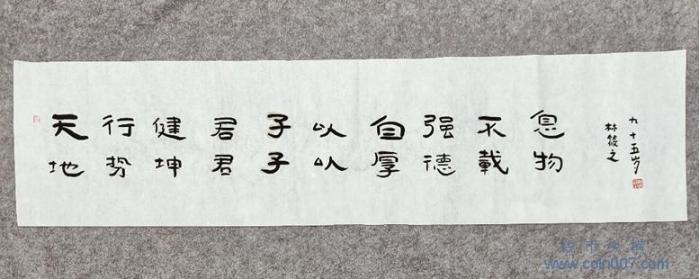 天行健君子以自强不息
地势坤君子以厚德载物
九十五岁
林筱之
www.coin007.com